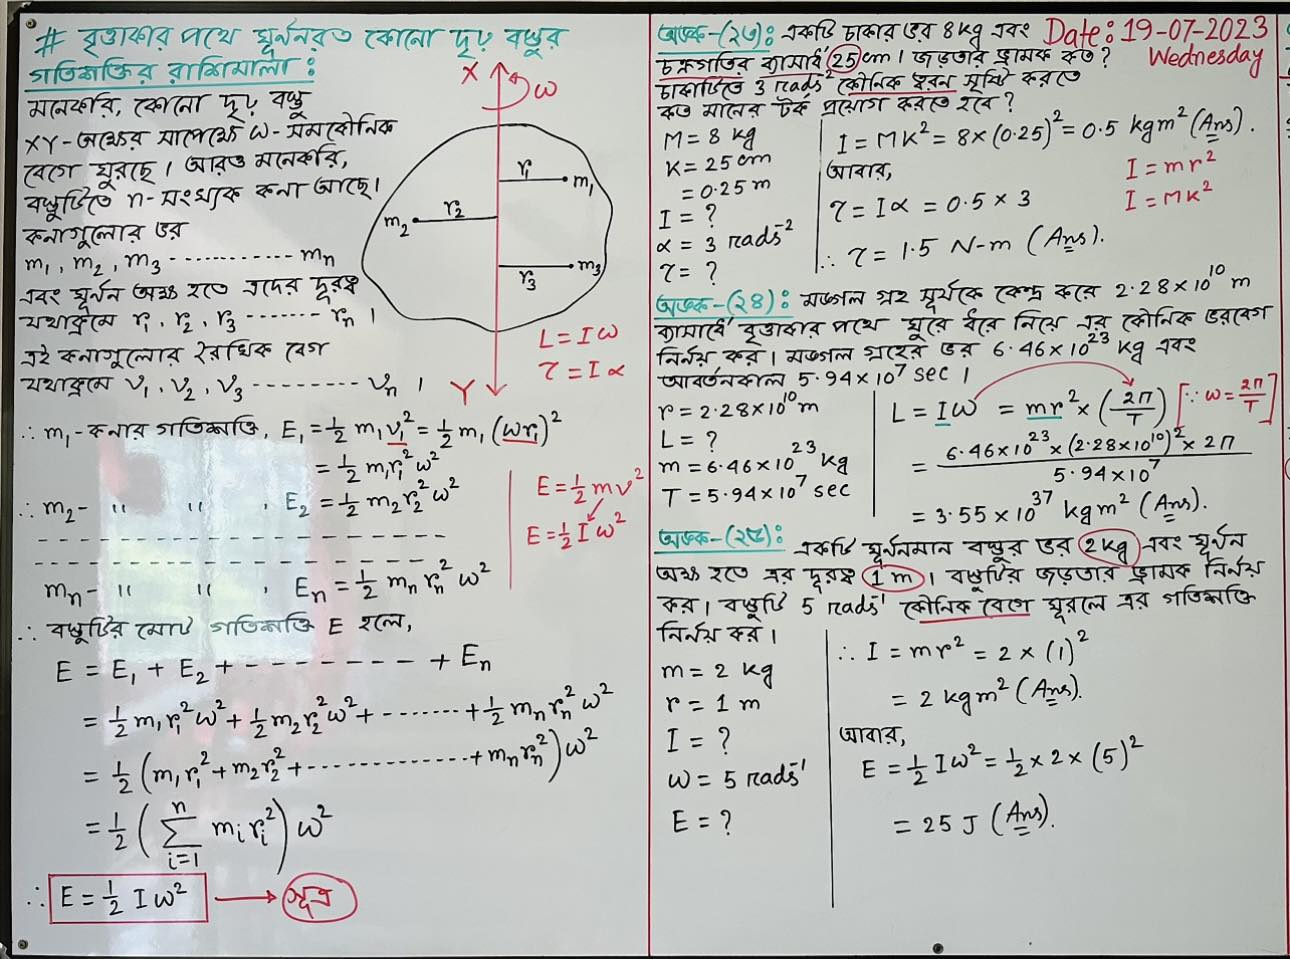 # বৃত্তাকার পথে ঘূর্ননরত কোনো দৃঢ় বস্তুর
গতিশক্তির রাশিমালা :
মনেকরি, কোনো দৃঢ় বস্তু
XY-অক্ষের সাপেক্ষে ω- সমকৌনিক
বেগে ঘুরছে। আরও মনেকরি,
বস্তুটিতে n- সংখ্যক কনা আছে।
কনাগুলোর ভর
m₁, m₂, m₃ ----------- mₙ
এবং ঘূর্নন অক্ষ হতে এদের দূরত্ব
যথাক্রমে r₁, r₂, r₃ ------- rₙ।
এই কনাগুলোর রৈখিক বেগ
যথাক্রমে v₁, v₂, v₃ --------- vₙ।
X
ω
r₁ m₁
m₂ r₂
r₃ m₃
Y
L = Iω
τ = Iα
∴ m₁-কনার গতিশক্তি, E₁ = ½ m₁v₁² = ½ m₁(ωr₁)²
= ½ m₁r₁²ω²
∴ m₂- " " , E₂ = ½ m₂r₂²ω²
--------------------
--------------------
mₙ- " " , Eₙ = ½ mₙrₙ²ω²
E = ½mv²
E = ½Iω²
∴ বস্তুটির মোট গতিশক্তি E হলে,
E = E₁ + E₂ + --------- + Eₙ
= ½ m₁r₁²ω² + ½ m₂r₂²ω² + ------- + ½ mₙrₙ²ω²
= ½ (m₁r₁² + m₂r₂² + ------------- + mₙrₙ²)ω²
= ½ (∑ᵢ₌₁ⁿ mᵢrᵢ²) ω²
∴ E = ½ Iω² → সূত্র
Date: 19-07-2023
Wednesday
অংক-(২৩): একটি চাকার ভর 8kg এবং
চক্রগতির ব্যাসার্ধ 25cm। জড়তার ভ্রামক কত?
চাকাটিতে 3 rads⁻² কৌনিক ত্বরন সৃষ্টি করতে
কত মানের টর্ক প্রয়োগ করতে হবে?
M = 8 kg
K = 25 cm
= 0.25 m
I = ?
α = 3 rads⁻²
τ = ?
I = MK² = 8×(0.25)² = 0.5 kgm² (Ans).
আবার,
τ = Iα = 0.5 × 3
∴ τ = 1.5 N-m (Ans).
I = mr²
I = MK²
অংক-(২৪): মঙ্গল গ্রহ সূর্যকে কেন্দ্র করে 2.28×10¹⁰ m
ব্যাসার্ধে বৃত্তাকার পথে ঘুরে ধরে নিয়ে এর কৌনিক ভরবেগ
নির্নয় কর। মঙ্গল গ্রহের ভর 6.46×10²³ kg এবং
আবর্তনকাল 5.94×10⁷ sec।
r = 2.28×10¹⁰ m
L = ?
m = 6.46×10²³ kg
T = 5.94×10⁷ sec
L = Iω = mr² × (2π/T) [∵ ω = 2π/T]
= 6.46×10²³ × (2.28×10¹⁰)² × 2π / 5.94×10⁷
= 3.55×10³⁷ kgm² (Ans).
অংক-(২৫): একটি ঘূর্ননমান বস্তুর ভর 2kg এবং ঘূর্নন
অক্ষ হতে এর দূরত্ব 1m। বস্তুটির জড়তার ভ্রামক নির্নয়
কর। বস্তুটি 5 rads⁻¹ কৌনিক বেগে ঘুরলে এর গতিশক্তি
নির্নয় কর।
m = 2 kg
r = 1 m
I = ?
ω = 5 rads⁻¹
E = ?
∴ I = mr² = 2 × (1)²
= 2 kgm² (Ans).
আবার,
E = ½ Iω² = ½ × 2 × (5)²
= 25 J (Ans).